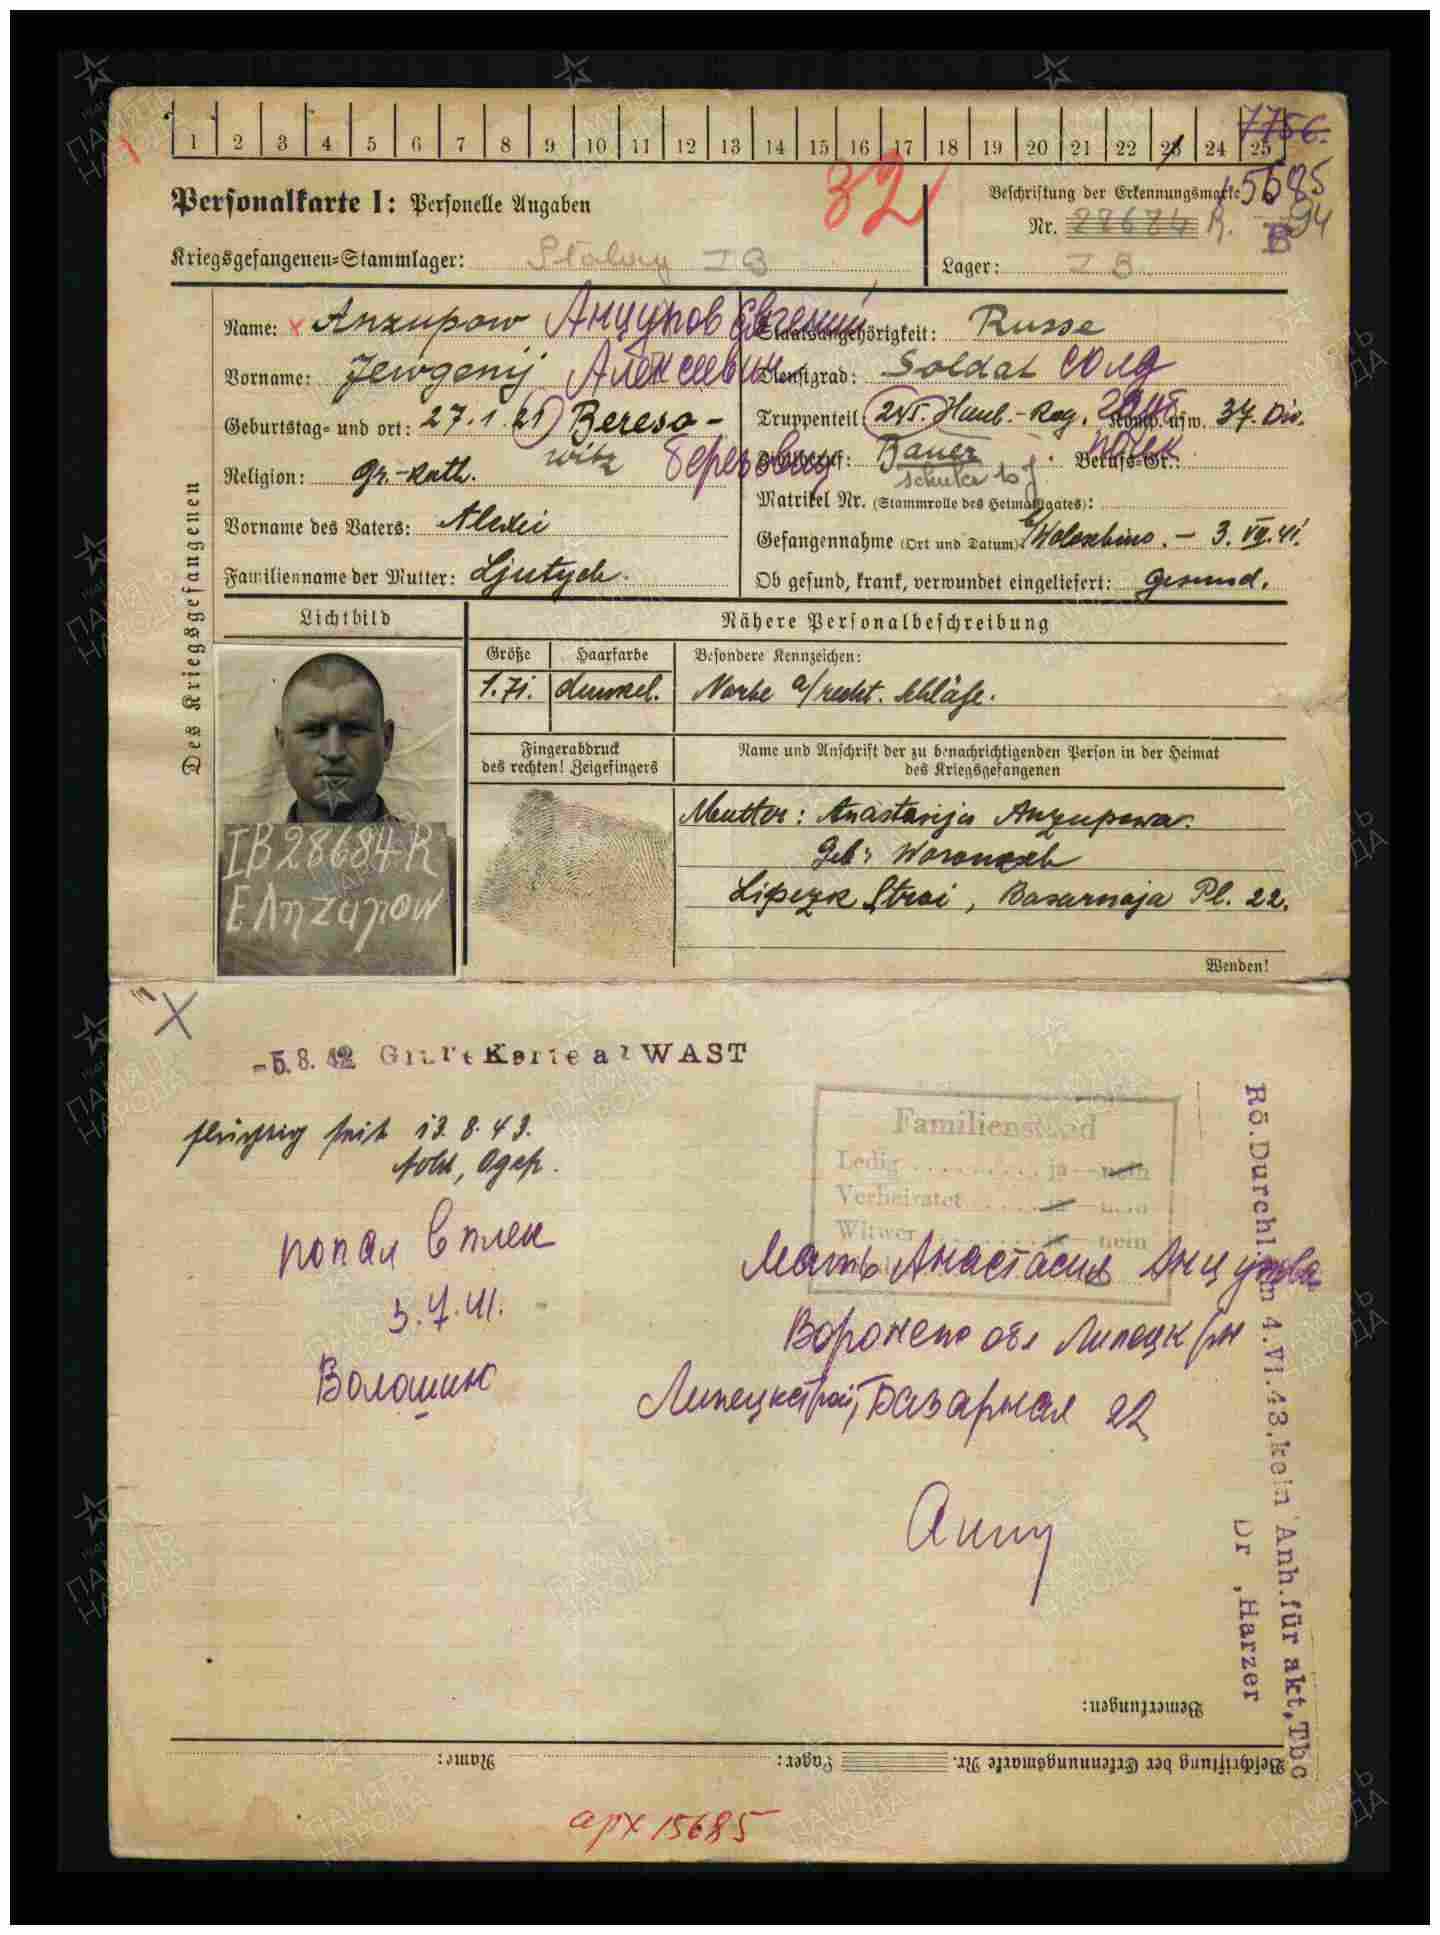 1 2 3 4 5 6 7 8 9 10 11 12 13 14 15 16 17 18 19 20 21 22 23 24 25
7756.
32
Personalkarte I: Personelle Angaben
Beschriftung der Erkennungsmarke
Nr. 28684 R.
15685
94
B
Kriegsgefangenen=Stammlager: Stalag I B
Lager: I B
Des Kriegsgefangenen
Name: Anzupow Анцупов Евгений
Staatsangehörigkeit: Russe
Vorname: Jewgenij Алексеевич
Dienstgrad: Soldat солд
Geburtstag= und ort: 27.1.21 Bereso-
witz
Truppenteil: 245. Haub.-Reg. Komp. usw. 37. Div.
полк
Religion: Gr.-Kath.
Zivilberuf: Bauer Berufs-Gr.:
Matrikel Nr. (Stammrolle des Heimatstaates):
Vorname des Vaters: Alexei
Gefangennahme (Ort und Datum): Woloschino. - 3. VII. 41.
Familienname der Mutter: Ljutych.
Ob gesund, krank, verwundet eingeliefert: gesund.
Lichtbild
Nähere Personalbeschreibung
Größe Haarfarbe Besondere Kennzeichen:
1.71. dunkel. Narbe a/recht. Schläfe.
Fingerabdruck
des rechten! Zeigefingers
Name und Anschrift der zu benachrichtigenden Person in der Heimat
des Kriegsgefangenen
IB 28684 R
E Anzapow
Mutter: Anastasija Anzupowa.
Geb: Woronesch
Lipezk Stroi, Basarnaja Pl. 22.
Wenden!
-5.8.42 Grüne Karte an WAST
flüchtig seit 13.8.43.
Familienstand
Ledig ja nein
Verheiratet ja nein
Witwer ja nein
попал в плен
3.7.41.
Волошин
Мать Анастасия Анцупова
Воронеж обл Липецк рн
Липецкстрой, Базарная 22
Rö.Durchl.im 4.VI.43,kein Anh.für akt,Tbc
Dr ,Harzer
Bemerkungen:
Beschriftung der Erkennungsmarke Nr. Lager: Name:
арх 15685